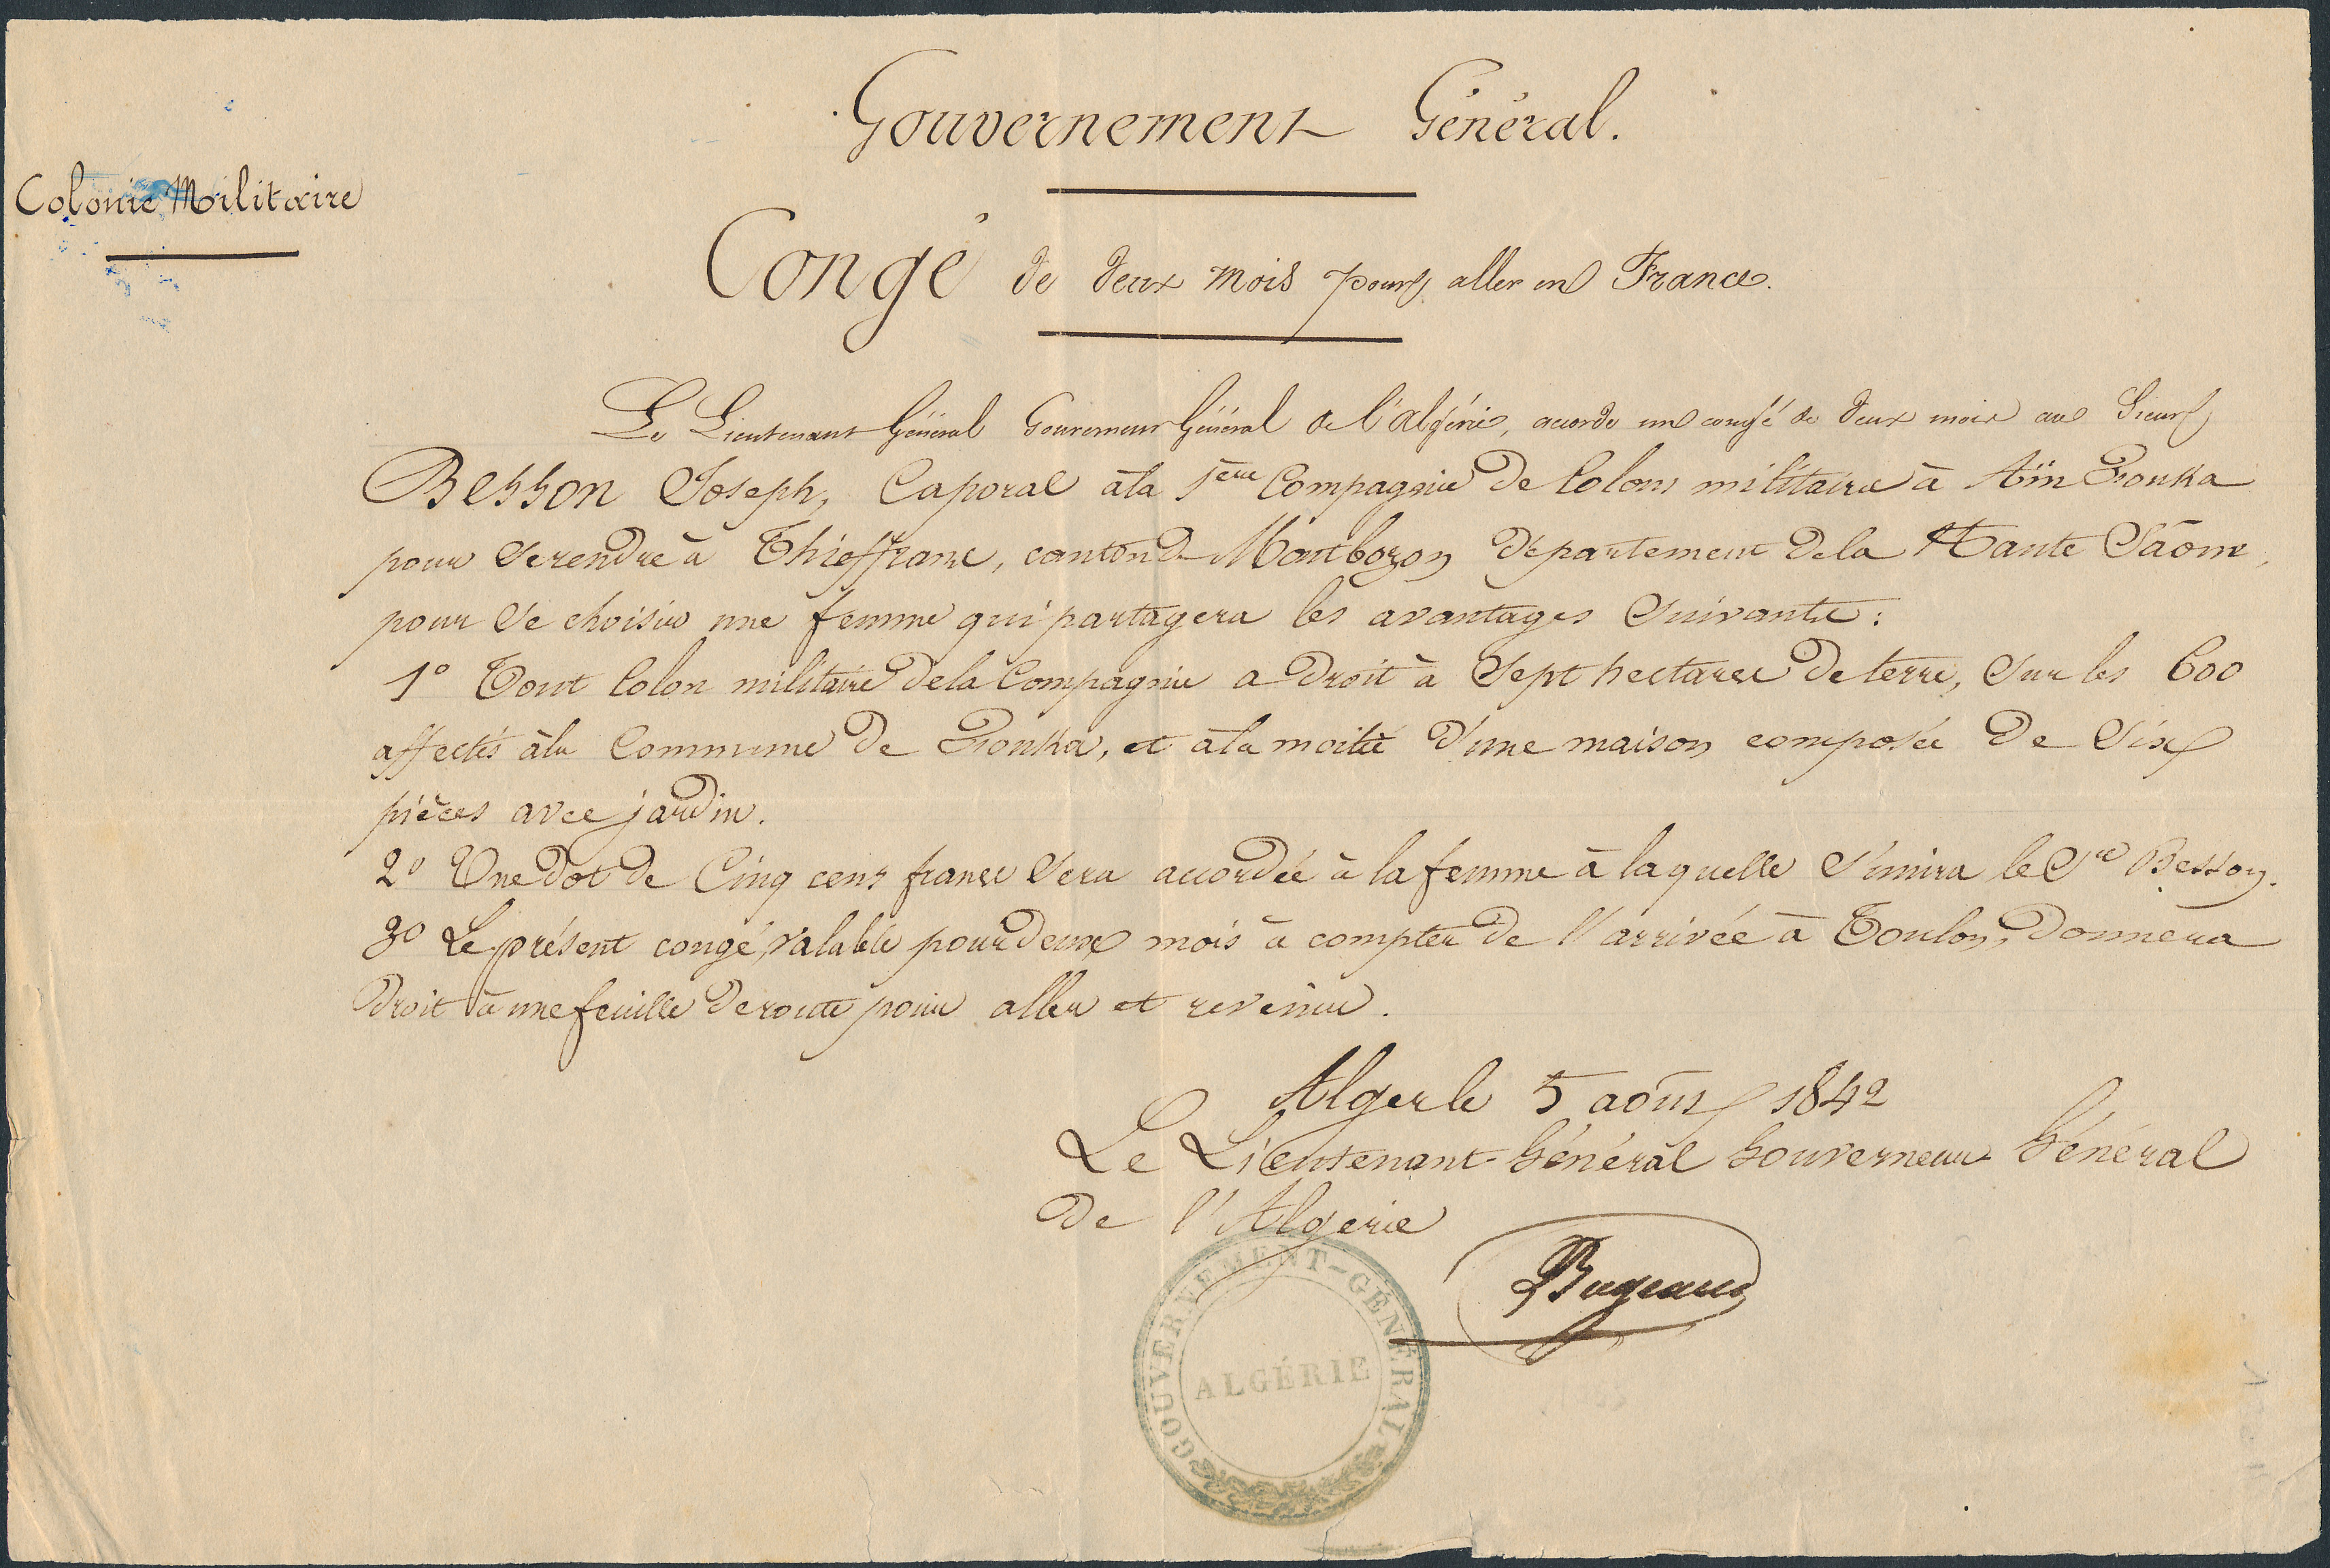 Gouvernement Général.
Colonie Militaire
Congé de deux mois pour aller en France.
Le Lieutenant Général Gouverneur Général de l'Algérie, accorde un congé de deux mois au Sieur
Besson Joseph, Caporal à la 1ère Compagnie de Colons militaires à Aïn Fouka
pour se rendre à Thieffranc, canton de Montbozon département de la Haute Saône,
pour se choisir une femme qui partagera les avantages suivants :
1º Tout Colon militaire de la Compagnie a droit à Sept hectares de terre, sur les 600
affectés à la Commune de Fouka, et à la moitié d'une maison composée de Six
pièces avec jardin.
2º Une dot de Cinq cens francs sera accordée à la femme à laquelle s'unira le Sr Besson.
3º Le présent congé, valable pour deux mois à compter de l'arrivée à Toulon, donnera
droit à une feuille de route pour aller et revenir.
Alger le 5 août 1842
Le Lieutenant-Général Gouverneur Général
de l'Algérie
Bugeaud
GOUVERNEMENT-GÉNÉRAL
ALGÉRIE